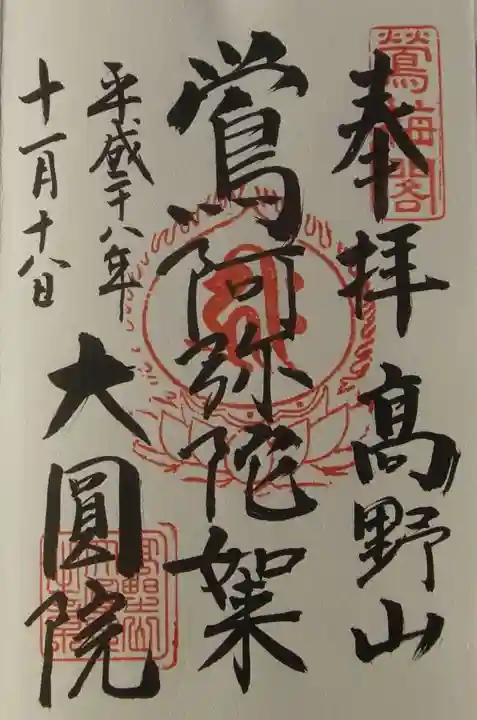 奉拝 高野山
鶯梅閣
鶯阿弥陀如来
平成二十八年
十一月十八日
大圓院